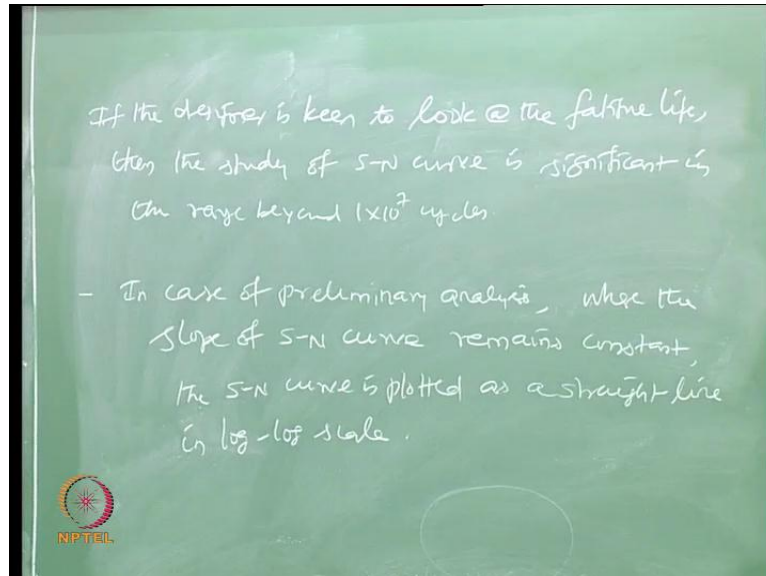 If the designer is keen to look @ the fatigue life,
then the study of S-N curve is significant in
the range beyond 1x10⁷ cycles.
- In case of preliminary analysis, where the
slope of S-N curve remains constant,
the S-N curve is plotted as a straight line
in log-log scale.
NPTEL